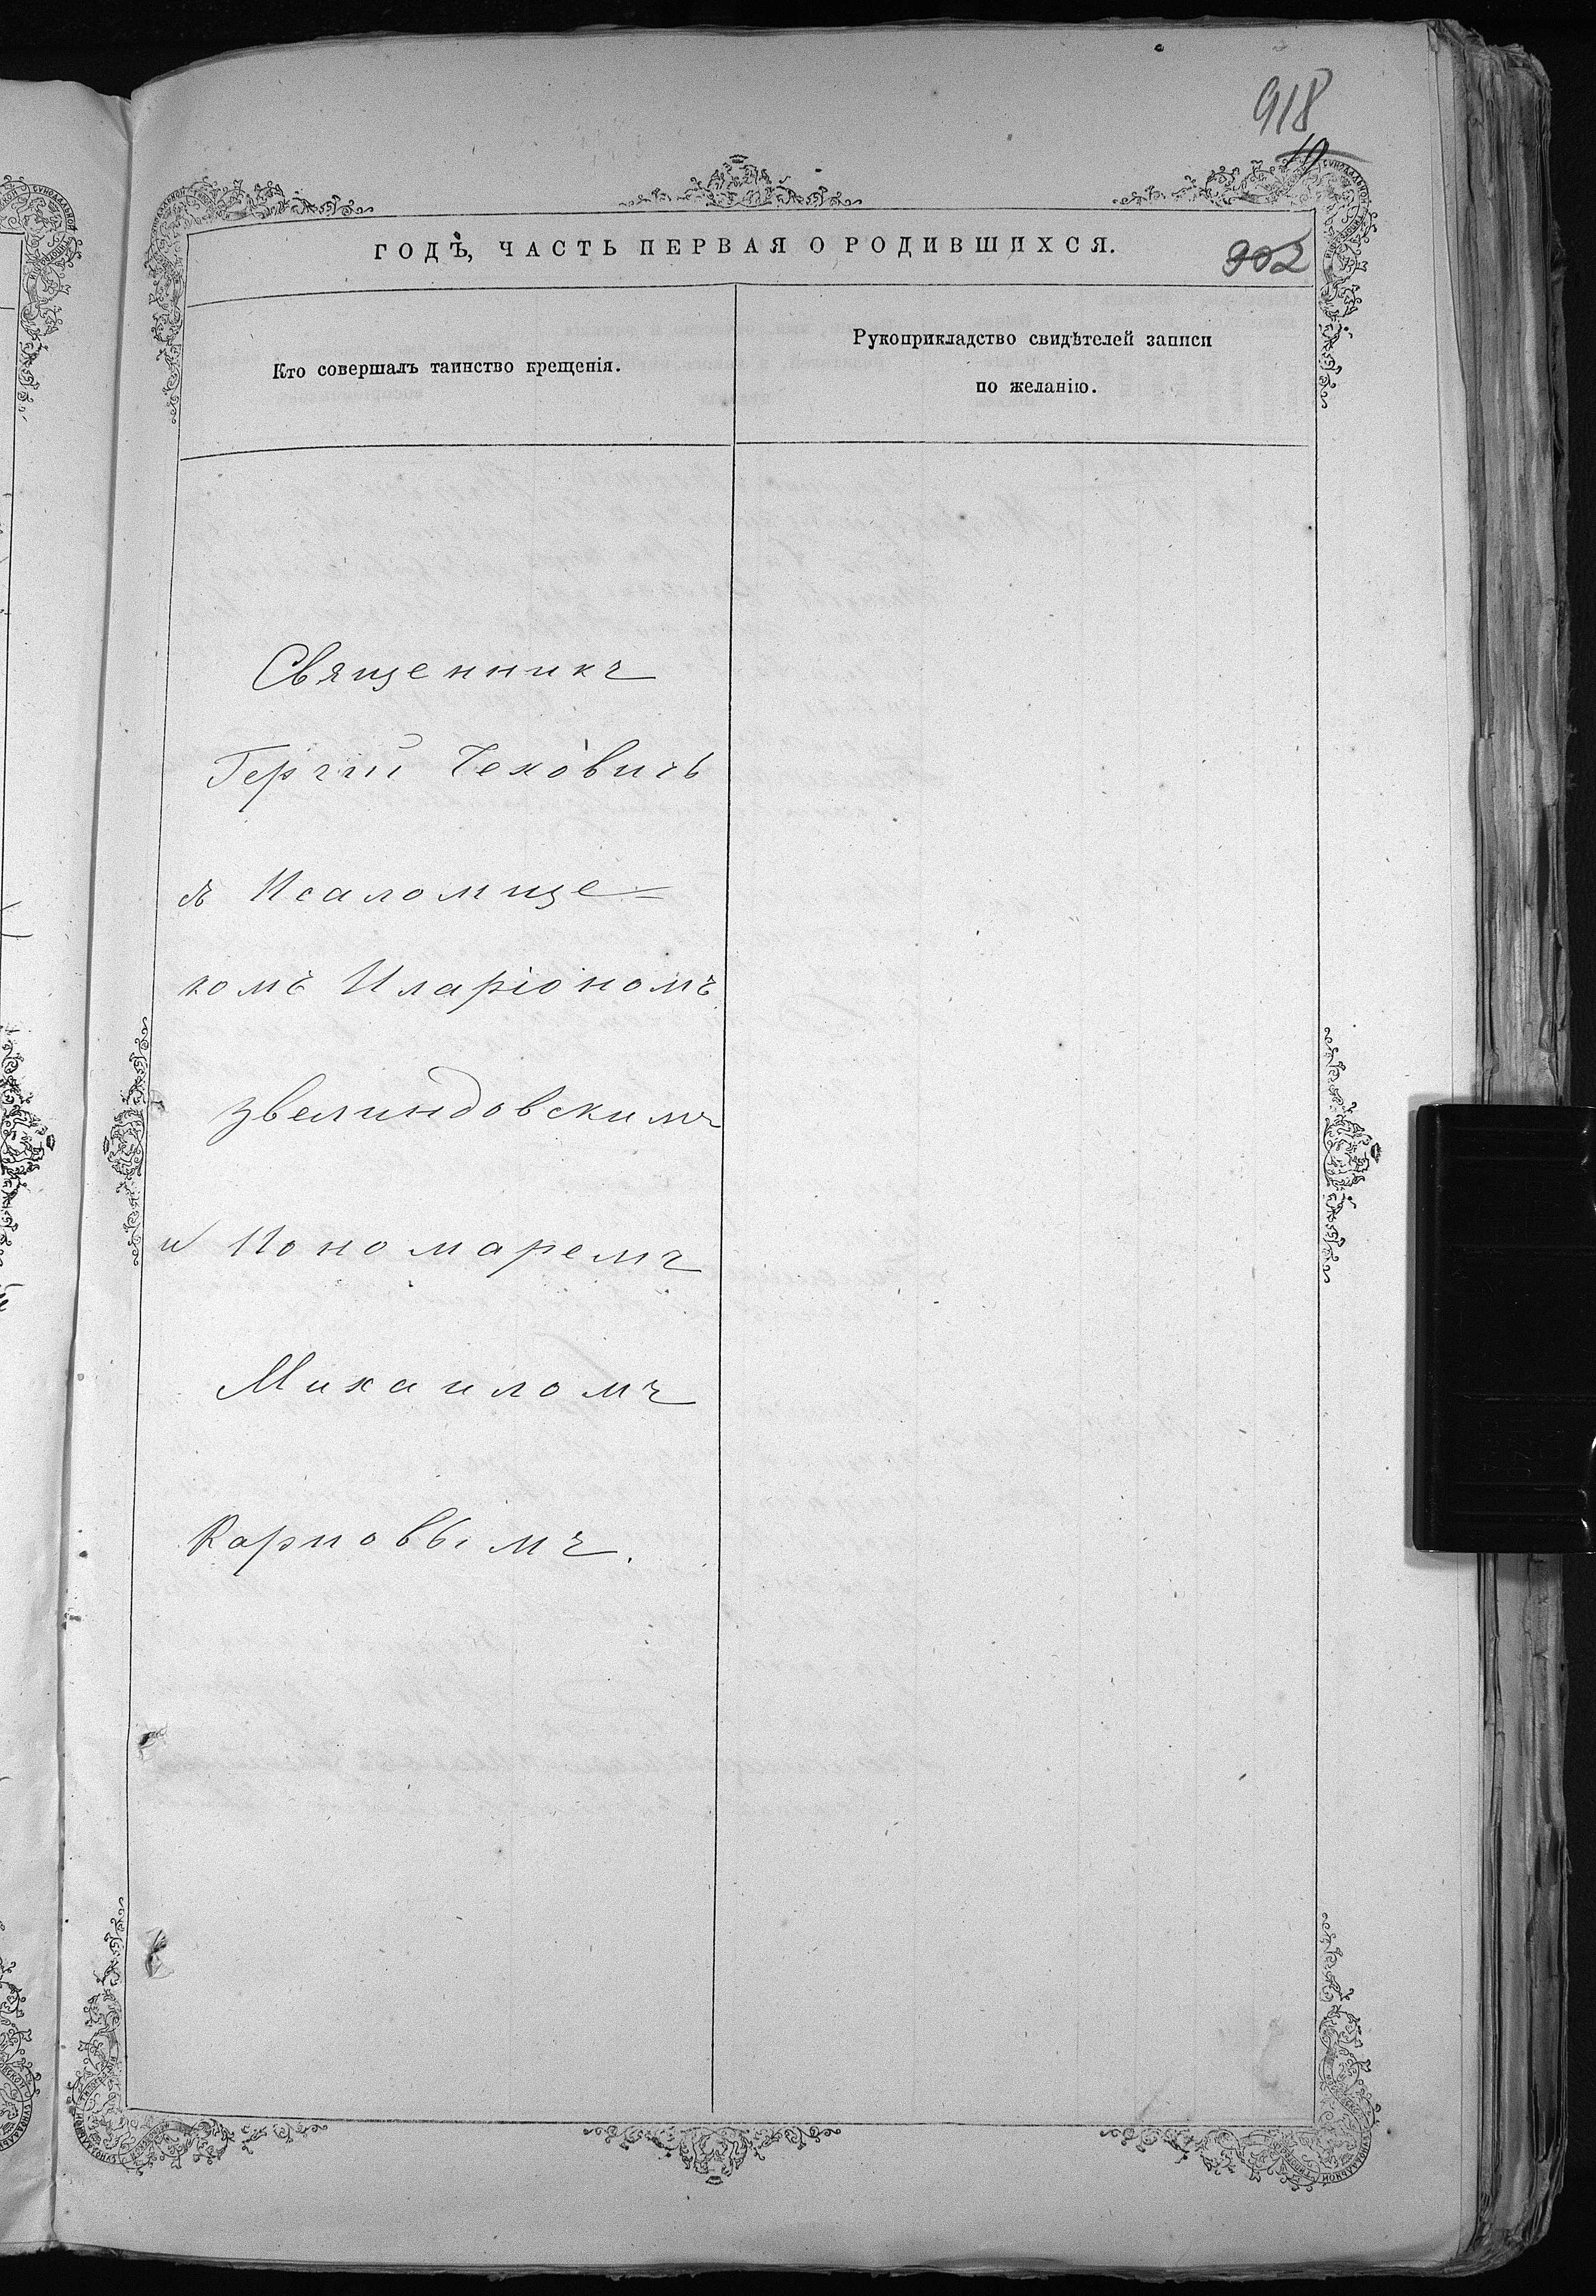 918
10
ГОДЪ, ЧАСТЬ ПЕРВАЯ О РОДИВШИХСЯ.
902
Кто совершалъ таинство крещенія.
Рукоприкладство свидѣтелей записи
по желанію.
Священникъ
Чехо̀вичъ
съ Псаломще=
комъ Иларіономъ
Звелиндовскимъ
и Пономаремъ
Михаиломъ
Карповымъ.